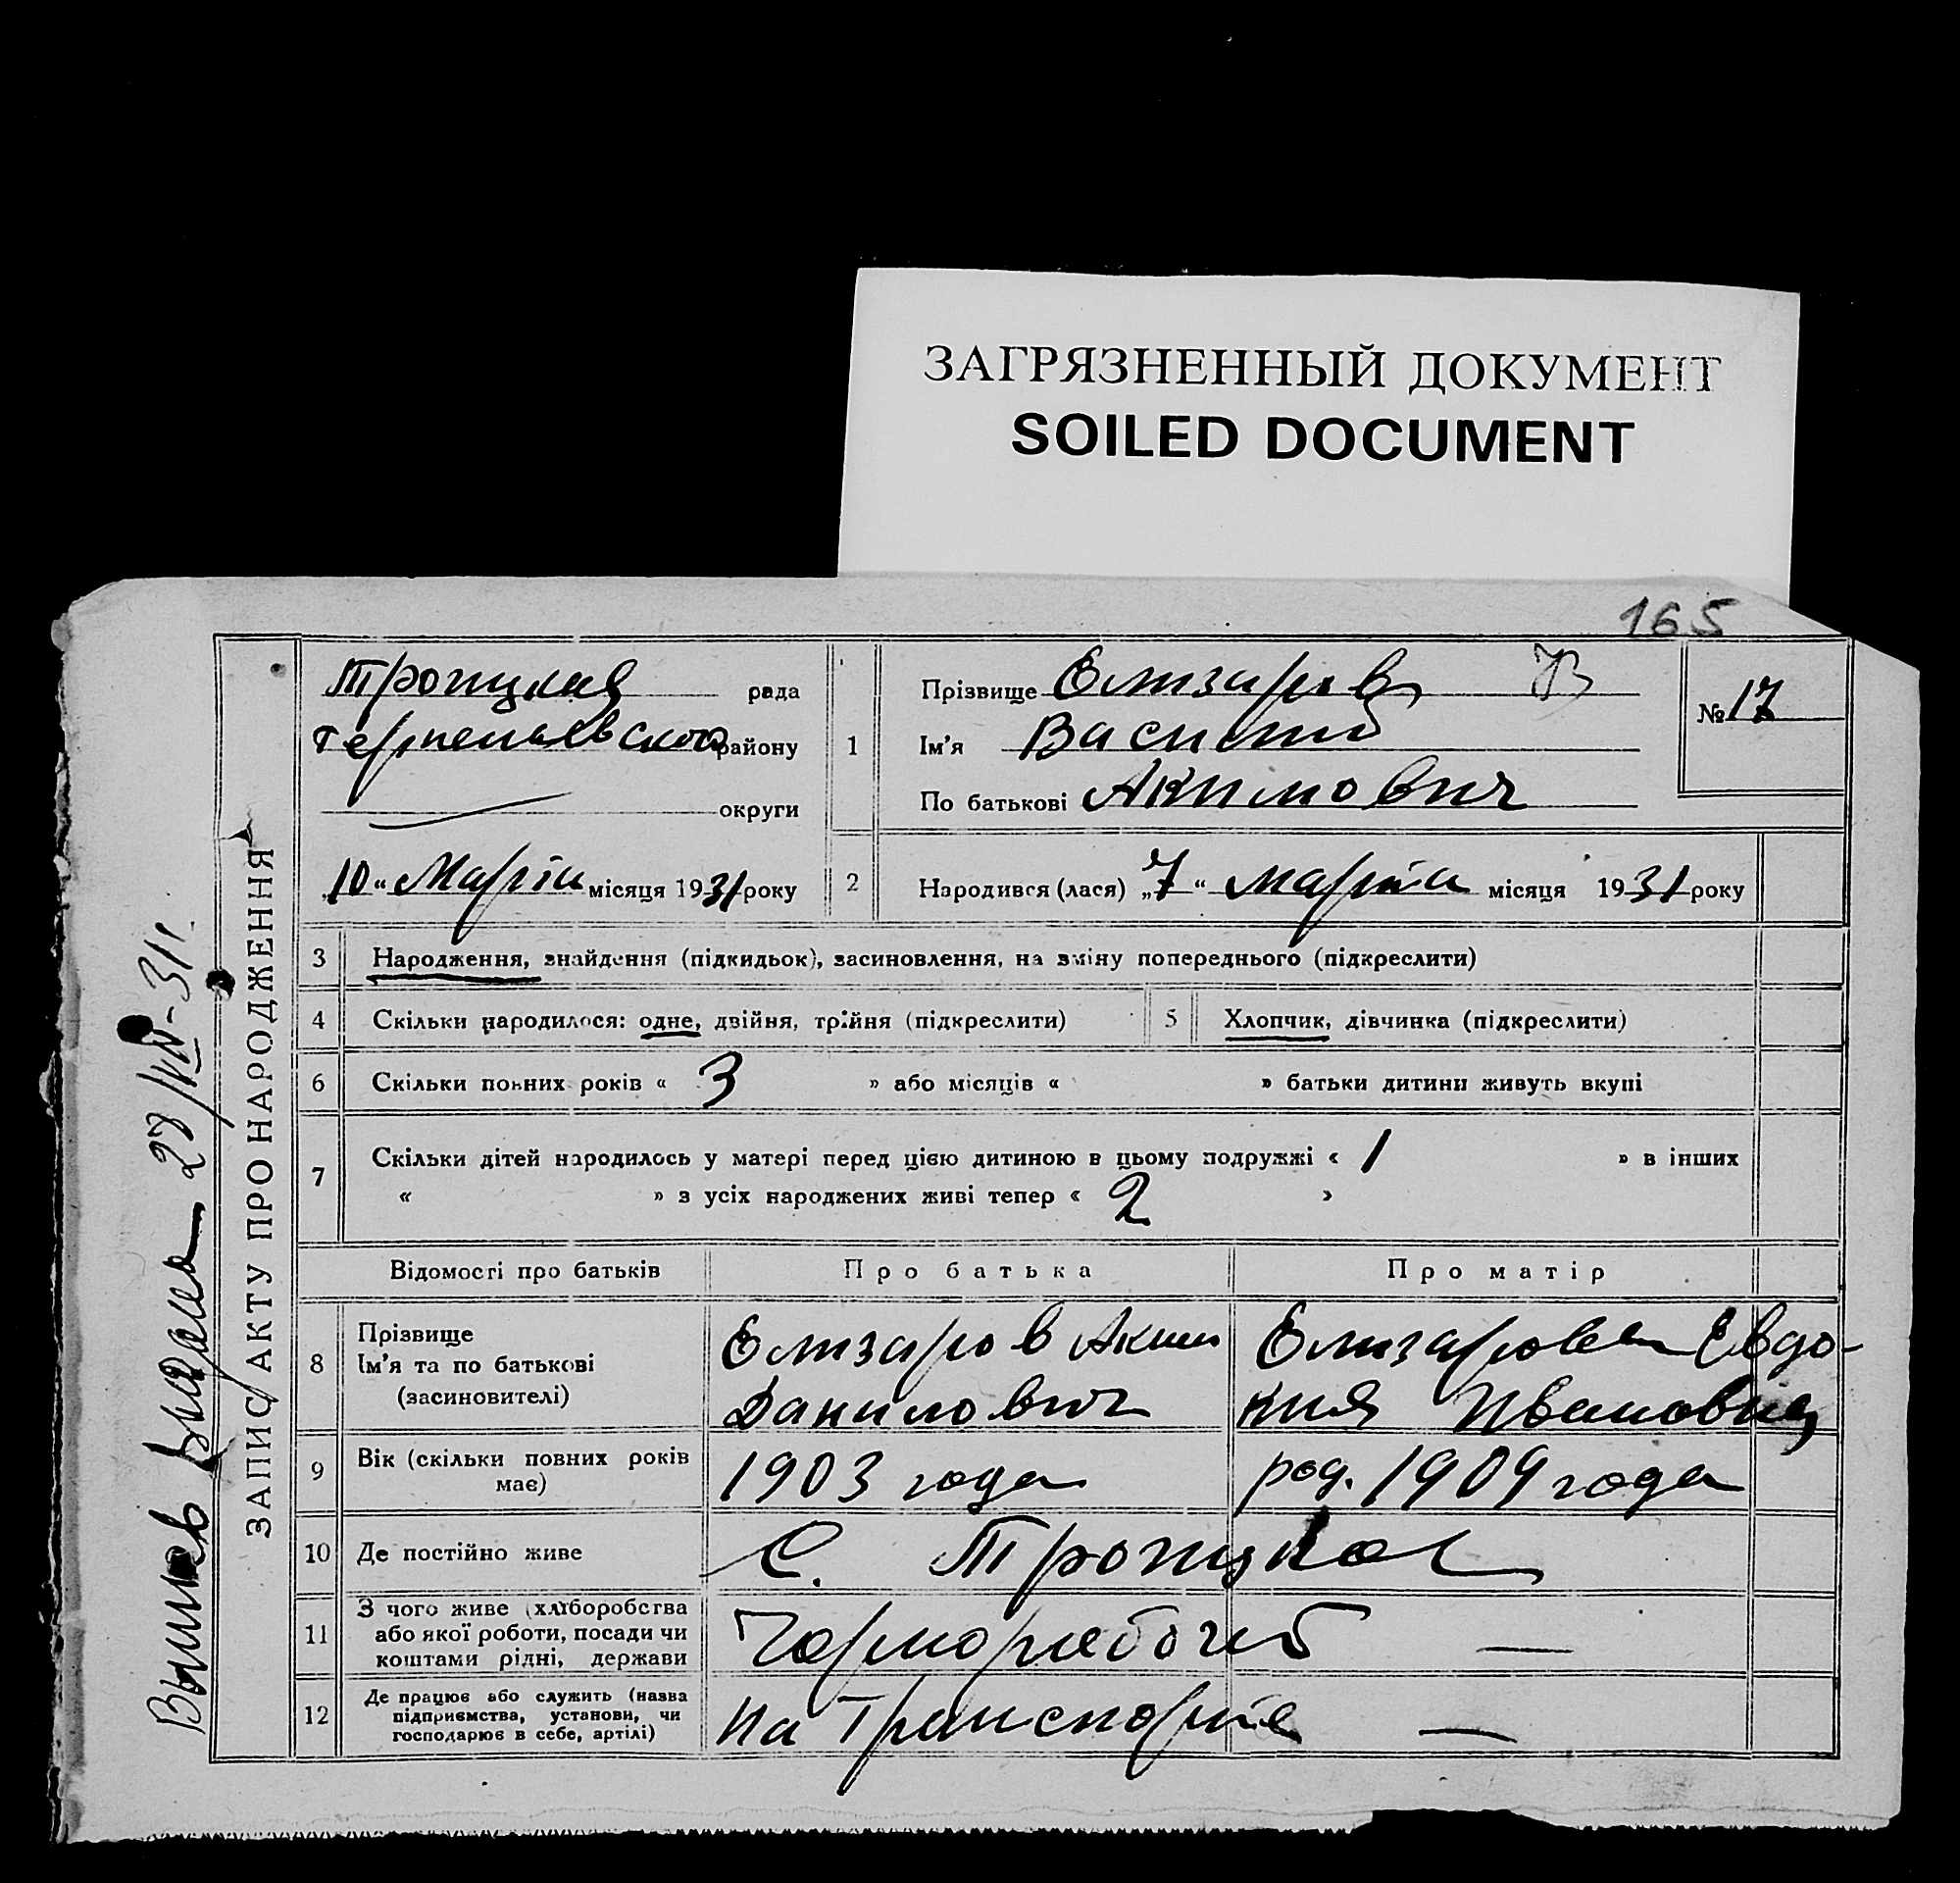 ЗАГРЯЗНЕННЫЙ ДОКУМЕНТ
SOILED DOCUMENT
165
ЗАПИС АКТУ ПРО НАРОДЖЕННЯ
Выпись выдана 28/VII-31г.
Троицкая рада
району
округи
„10“ Марта місяця 1931 року
1
Прізвище Елизаров
Ім'я Василий
По батькові Акимович
№ 17
2 Народився (лася) „7“ марта місяця 1931 року
3 Народження, знайдення (підкидьок), засиновлення, на зміну попереднього (підкреслити)
4 Скільки народилося: одне, двійня, трійня (підкреслити) 5 Хлопчик, дівчинка (підкреслити)
6 Скільки повних років « 3 » або місяців « » батьки дитини живуть вкупі
7 Скільки дітей народилось у матері перед цією дитиною в цьому подружжі « 1 » в інших
« » з усіх народжених живі тепер « 2 »
Відомості про батьків Про батька Про матір
8 Прізвище Ім'я та по батькові (засиновителі)
Елизаров Аким
Данилович
Елизарова Евдо-
кия Ивановна
9 Вік (скільки повних років має) 1903 года род. 1909 года
10 Де постійно живе с. Троицкое
11 З чого живе (хліборобства або якої роботи, посади чи коштами рідні, держави Чернорабочий —
12 Де працює або служить (назва підприємства, установи, чи господарює в себе, артілі) на Транспорте —